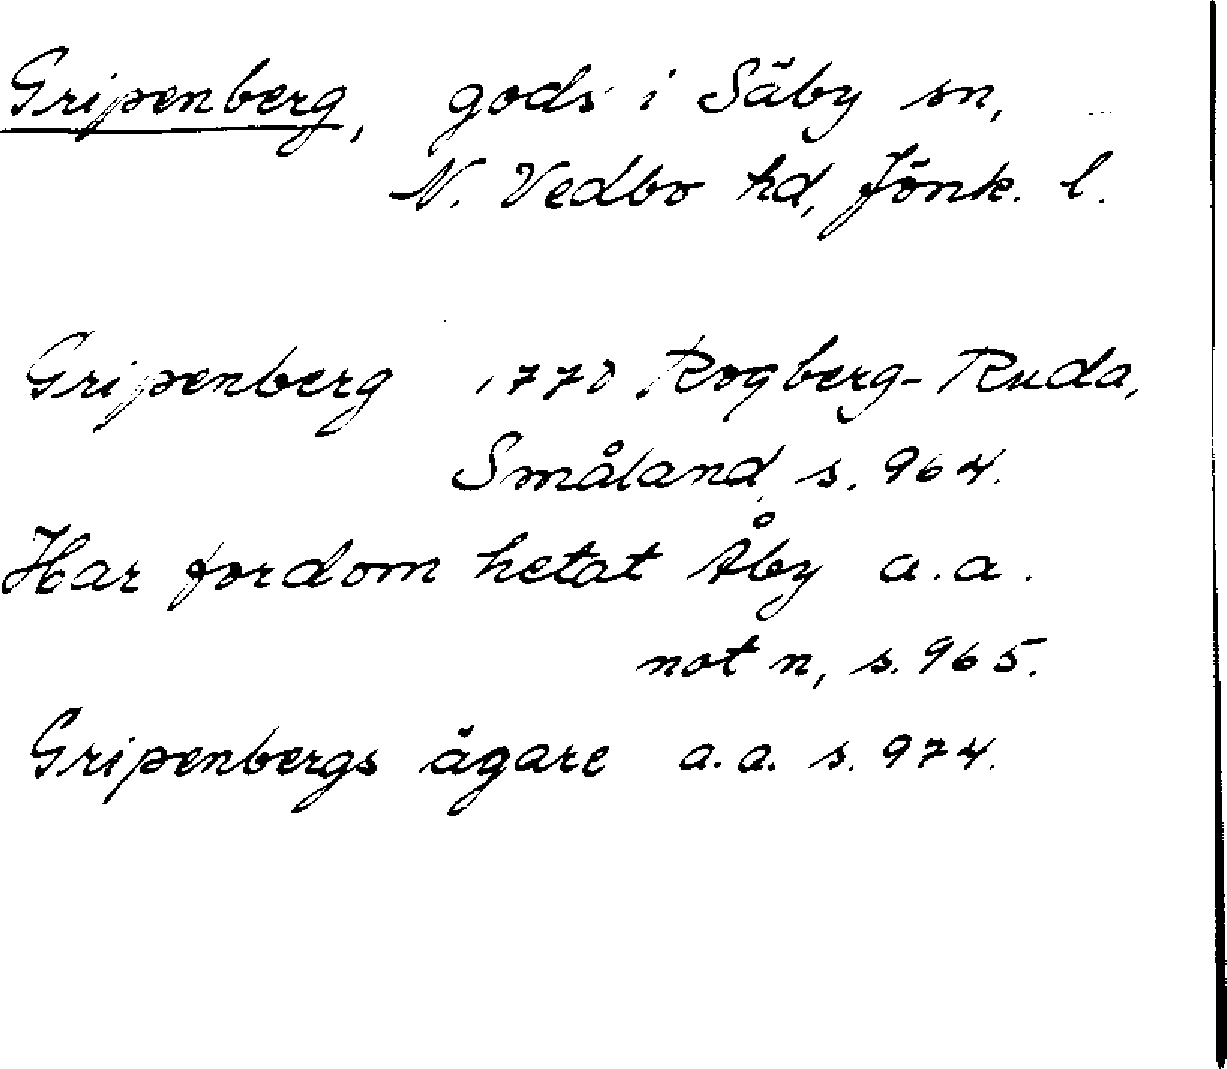 Gripenberg, gods i Säby sn,
N. Vedbo hd, Jönk. l.
Gripenberg 1770 Rogberg-Ruda,
Småland s. 964.
Har fordom hetat Åby a.a.
not n, s. 965.
Gripenbergs ägare a.a. s. 974.